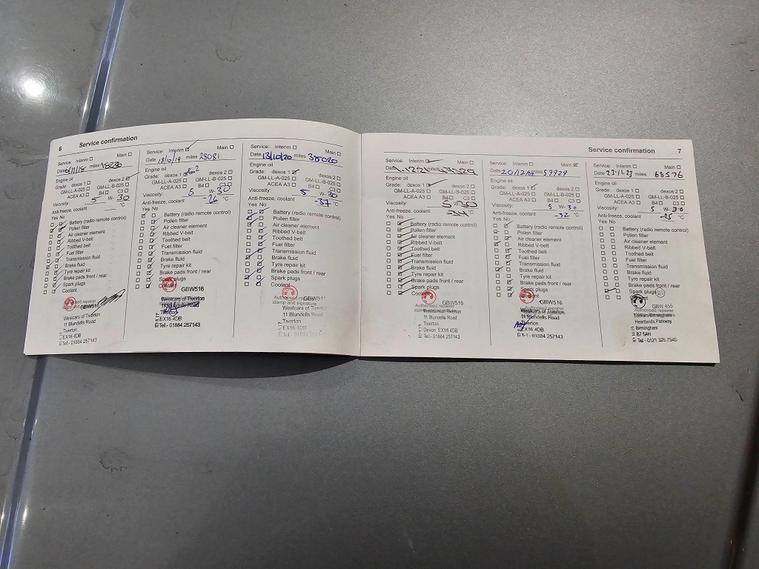 6 Service confirmation
Service: Interim Main
miles 18236
Engine oil
Grade: dexos 1 dexos 2
GM-LL-A-025 GM-LL-B-025
ACEA A3 B4 C3
Viscosity: 5 W- 30
Anti-freeze, coolant °C
Yes No
Battery (radio remote control)
Pollen filter
Air cleaner element
Ribbed V-belt
Toothed belt
Fuel filter
Transmission fluid
Brake fluid
Tyre repair kit
Brake pads front / rear
Spark plugs
Coolant
GBW516
Westcars of Tiverton
11 Blundells Road
Tiverton
EX16 4DB
Tel - 01884 257143
Service: Interim Main
miles 28081
Engine oil
Grade: dexos 1 dexos 2
GM-LL-A-025 GM-LL-B-025
ACEA A3 B4 C3
Viscosity: 5 W- 30
Anti-freeze, coolant °C
Yes No
Battery (radio remote control)
Pollen filter
Air cleaner element
Ribbed V-belt
Toothed belt
Fuel filter
Transmission fluid
Brake fluid
Tyre repair kit
Brake pads front / rear
Spark plugs
GBW516
Westcars of Tiverton
EX16 4DB
Tel - 01884 257143
Service: Interim Main
Date 13/10/20 miles
Engine oil
Grade: dexos 1 dexos 2
GM-LL-A-025 GM-LL-B-025
ACEA A3 B4 C3
Viscosity: 5 W- 30
Anti-freeze, coolant -37 °C
Yes No
Battery (radio remote control)
Pollen filter
Air cleaner element
Ribbed V-belt
Toothed belt
Fuel filter
Transmission fluid
Brake fluid
Tyre repair kit
Brake pads front / rear
Spark plugs
Coolant
Westcars of Tiverton
11 Blundells Road
Tiverton
EX16 4DB
Tel - 01884 257143
Service confirmation 7
Service: Interim Main
Engine oil
Grade: dexos 1 dexos 2
GM-LL-A-025 GM-LL-B-025
ACEA A3 B4 C3
Viscosity: 5 W- 30
Anti-freeze, coolant °C
Yes No
Battery (radio remote control)
Pollen filter
Air cleaner element
Ribbed V-belt
Toothed belt
Fuel filter
Transmission fluid
Brake fluid
Tyre repair kit
Brake pads front / rear
Spark plugs
Coolant
GBW516
Westcars of Tiverton
11 Blundells Road
Tiverton
Devon EX16 4DB
Tel - 01884 257143
Service: Interim Main
miles 59729
Engine oil
Grade: dexos 1 dexos 2
GM-LL-A-025 GM-LL-B-025
ACEA A3 B4 C3
Viscosity: 5 W- 30
Anti-freeze, coolant -32 °C
Yes No
Battery (radio remote control)
Pollen filter
Air cleaner element
Ribbed V-belt
Toothed belt
Fuel filter
Transmission fluid
Brake fluid
Tyre repair kit
Brake pads front / rear
Spark plugs
GBW516
Westcars of Tiverton
11 Blundells Road
Tiverton
EX16 4DB
Service: Interim Main
Date 23-11-23 miles 68576
Engine oil
Grade: dexos 1 dexos 2
GM-LL-A-025 GM-LL-B-025
ACEA A3 B4 C3
Viscosity: 5 W- 30
Anti-freeze, coolant -35 °C
Yes No
Battery (radio remote control)
Pollen filter
Air cleaner element
Ribbed V-belt
Toothed belt
Fuel filter
Transmission fluid
Brake fluid
Tyre repair kit
Brake pads front / rear
Spark plugs
Heartlands Parkway
Birmingham
B7 5AN